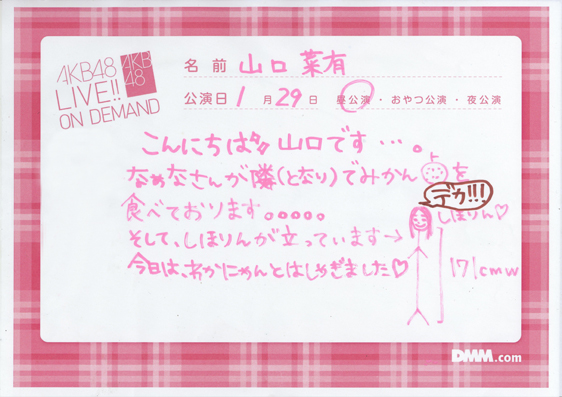 AKB48
LIVE!!
ON DEMAND
AKB
48
名前 山口 菜有
公演日 1月29日 昼公演・おやつ公演・夜公演
こんにちは 山口です…。
なぁなさんが隣(となり)でみかん を
食べております。。。。。
デカ!!!
しほりん♡
そして、しほりんが立っています→
今日は、おかにゃんとはしゃぎました♡
171cmw
DMM.com